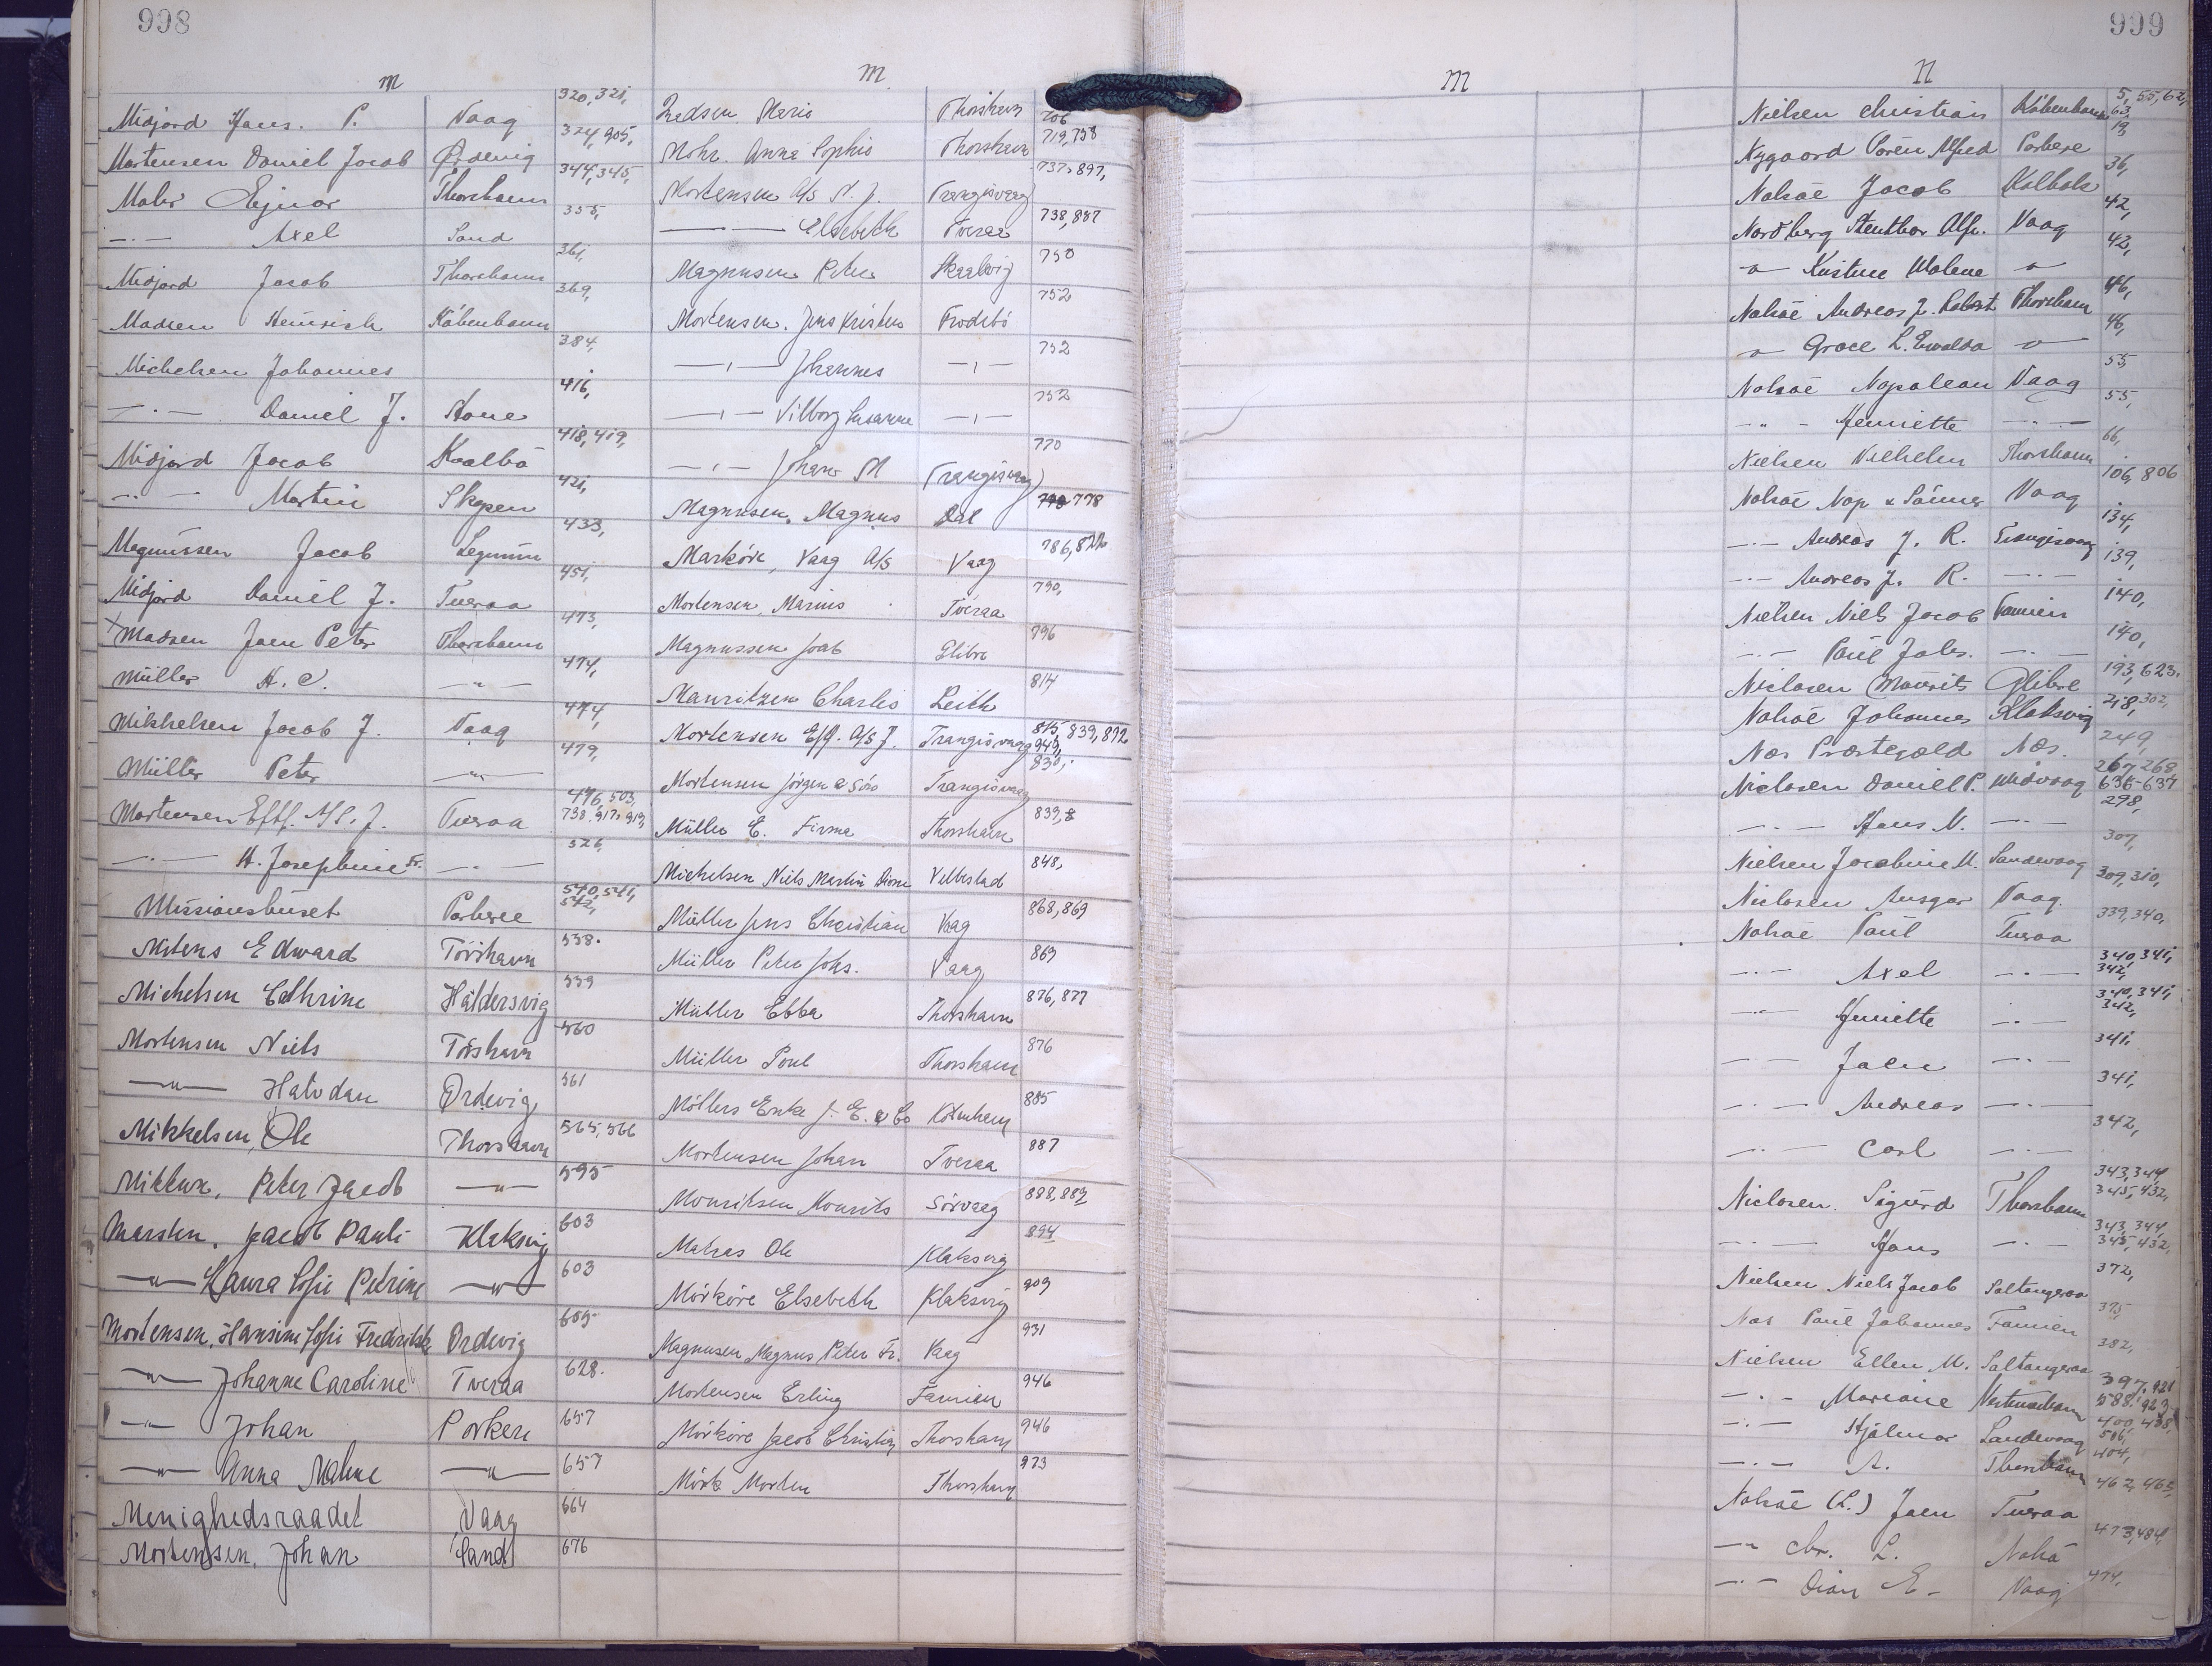 998
m
Midjord Hans. P. Vaag 320, 321,
Mortensen Daniel Jacob Ørdevig 324, 905,
Mohr Ejnar Thorshavn 344, 345,
—·— Axel Sand 355,
Midjord Jacob Thorshavn 361,
Madsen Heinrich København 369,
Michelsen Johannes 384,
—·— Daniel J. Hove 416,
Midjord Jacob Kvalbø 418, 419,
—·— Martin Skopen 421,
Magnussen Jacob 433,
Midjord Daniel J. Tveraa 451,
Madsen Joen Peter Thorshavn 473,
Müller H. C. —"— 474,
Mikkelsen Jacob J. Vaag 474,
Müller Peter —"— 479,
Mortensen Eftf. J. Tveraa 496, 503, 738, 917, 919,
—·— H. Josephine Fr. —·— 526,
Missionshuset Porkere 540, 541, 542,
Mitens Edward Tórshavn 558.
Michelsen Cathrine Haldersvig 559
Mortensen Niels Torshavn 560
—"— Halvdan Ørdevig 561
Mikkelsen, Ole Thorshavn 565, 566
Peter Jacob —"— 595
Jacob Pauli Klaksvig 603
—"— Laura Sofie Petrine —"— 603
Mortensen, Hansine Sofie Fredrikke Ørdevig 605
—"— Johanne Caroline Tveraa 628.
—"— Johan Porkere 657
—"— Anna Malene —"— 657
Menighedsraadet Vaag 664
Mortensen, Johan Sand 676
M.
Madsen Maria Thorshavn 706
Mohr. Anna Sophie Thorshavn 719, 758
Mortensen A/S J. Trangisvaag 737, 897,
—— —— Elsebeth Tveraa 738, 887
Magnusen Peter Skaalvig 750
Mortensen. Jens Kristen Frodebö 752
—·— Johannes —·— 752
—·— Vilborg Susanne —·— 752
—·— Johan M Trangisvaag 770
Magnusen, Magnus Dal 778
Markøre, Vaag A/S Vaag 786,
Mortensen, Marius Tveraa 790,
Magnussen Joab Glibre 796
Mauritzen Charles Leith 814
Mortensen Eftf. A/S J. Trangisvaag 815, 839, 892 949,
Mortensen Jörgen & Sörs Trangisvaag 830,
Müller E. Firma Thorshavn 839,
Michelsen Niels Martin Velbestad 848,
Müller Jens Christian Vaag 868, 869
Müller Peter Johs. Vaag 869
Müller Ebba Thorshavn 876, 877
Müller Poul Thorshavn 876
Möllers Enke J. E. & Co 885
Mortensen Johan Tveraa 887
Mouritsen Mourits Sörvaag 888, 889
Matras Ole Klaksvig 894
Mörköre Elsebeth Klaksvig 909
Magnusen Magnus Peter Fr. Vaag 931
Mortensen Erling Famien 946
Mörköre Jacob Christian Thorshavn 946
Mörk Morten Thorshavn 973
999
M
N
Nielsen Christian København 5, 55, 62, 63,
Nygaard Sören Alfred Porkere 19,
Nolsöe Jacob Kolbak 36,
Nordberg Stenthor Alfr. Vaag 42,
—"— Kristine Malene —"— 42,
Nolsöe Andreas J. Robert Thorshavn 46,
—"— Grace L. Ewalda —"— 46,
Nolsöe Napolean Vaag 55,
—"— Henriette —·— 55,
Nielsen Vilhelm Thorshavn 66,
Nolsöe Nap & Sönner Vaag 106, 806
—·— Andreas J. R. Trangisvaag 134,
—·— Andreas J. R. —·— 139,
Nielsen Niels Jacob Famien 140,
—·— Poul Johs. —·— 140,
Niclasen Mourits Glibre 193, 623.
Nolsöe Johannes Klaksvig 218, 302,
Nes Præstegæld Nes. 249,
Niclasen Daniel P. Midvaag 267, 268 636-637
—·— Hans N. —·— 298,
Nielsen Jacobine M. Sandevaag 307,
Niclasen Ansgar Vaag. 309, 310,
Nolsöe Poul Tveraa 339, 340,
—·— Axel —·— 340, 341, 342,
—·— Henriette —·— 340, 341, 342,
—·— Joen —·— 341,
—·— Andreas —·— 341,
—·— Carl —·— 342,
Niclasen. Sigurd Thorshavn 343, 344, 345, 432,
—·— Hans —·— 343, 344, 345, 432,
Nielsen Niels Jacob Saltangeraa 372,
Nes Poul Johannes Famien 375,
Nielsen Ellen M. Saltangeraa 382,
—·— Mariane Vestmanhavn 397, 921 588, 923
—·— Hjalmar Sandevaag 400, 408, 506,
—·— A. Thorshavn 404,
Nolsöe (L.) Joen Tveraa 462, 465,
—"— Chr. L. Nolsö 473, 484,
—·— E. Vaag 474,